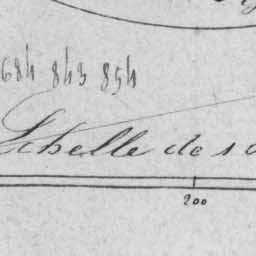 684 843 854
Echelle de 1 à
200